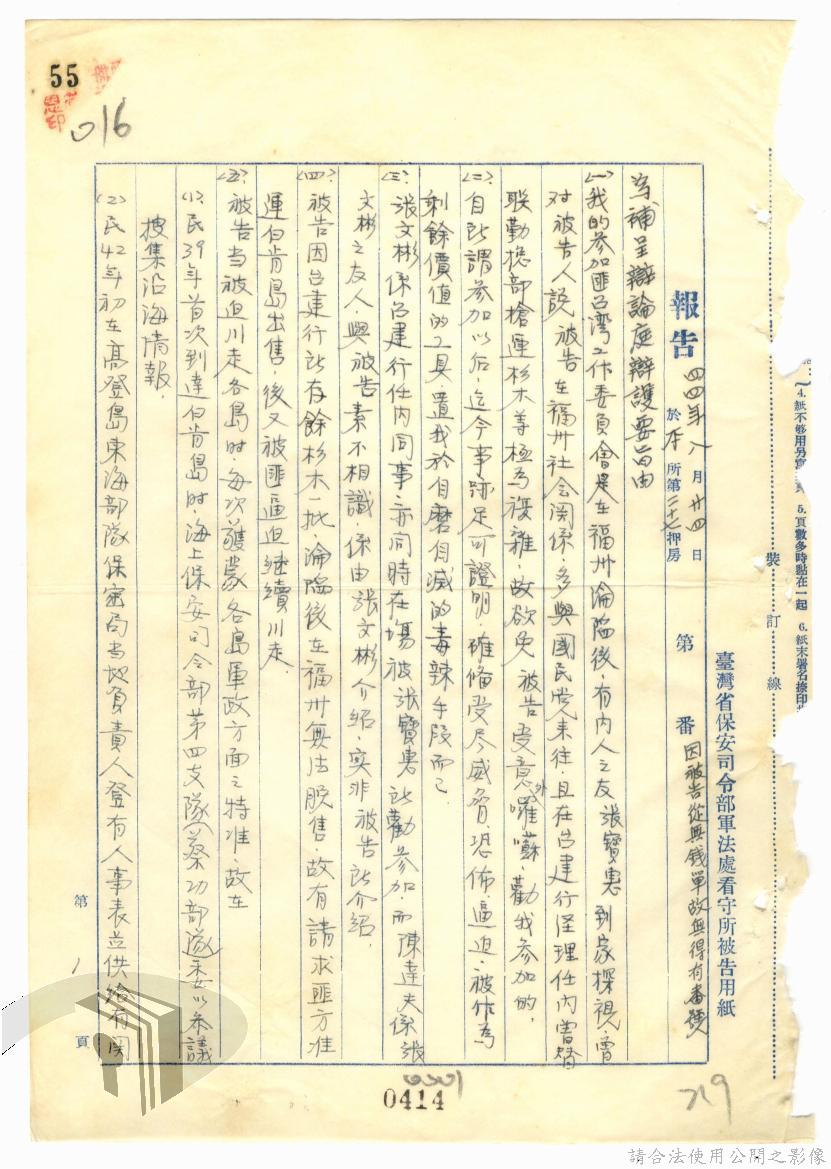 4.紙不够用另寫
5.頁數多時黏在一起
6.紙末署名捺印
裝訂線
臺灣省保安司令部軍法處看守所被告用紙
報告 四四年八月廿四日 於本所第二十七押房
第 番 因被告從無錢單故無得有番號
為補呈辯論庭辯護要旨由
(一)我的參加匪台灣工作委員會是在福州淪陷後,有內人之友張寶惠到家探視,曾
对被告人說被告在福州社会関係,多與國民党來往,且在台建行経理任內曾替
联勤總部搶運杉木等極為複雜,故欲免被告受意外囉囌,勸我參加的,
(二)自所謂參加以后,迄今事跡足可證明,確僅受尽威脅,恐佈,逼迫,被作為
剩餘價值的工具,置我於自磨自滅的毒辣手段而已
(三)張文彬係台建行任內同事,亦同時在場被張寶惠所勸參加,而陳達夫係張
文彬之友人,與被告素不相識,係由張文彬介紹,实非被告所介紹,
(四)被告因台建行所存餘杉木一批,淪陷後在福州無法脫售,故有請求匪方准
運白肯島出售,後又被匪逼迫継續川走,
(五)被告当被迫川走各島时,每次護蒙各島軍政方面之特准,故在
(1)民39年首次到達白肯島时,海上保安司令部第四支隊(蔡功部隊)委以參議
搜集沿海情報,
(2)民42年初在高登島東海部隊保密局当地負責人登有人事表並供給有関
第 1 頁
55
016
0414
719
請合法使用公開之影像